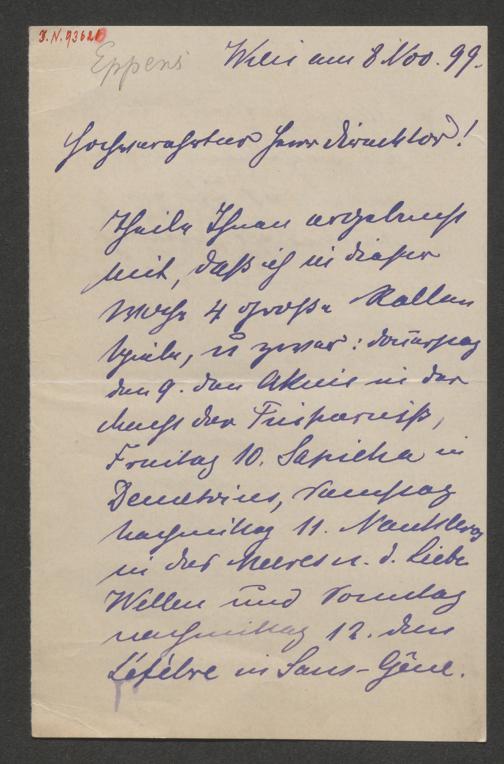 I.N. 93621
Eppens
Wien am 8 Nov. 99.
Hochverehrter Herr Direktor!
Theile Ihnen ergebenst
mit, daß ich in dieser
Woche 4 große Rollen
spiele, u zwar: Donerstag
den 9. den Akim in der
Macht der Finsterniß,
Freitag 10. Sapieha in
Demetrius, Samstag
nachmittag 11. Naukleros
in des Meeres u. d. Liebe
Wellen und Sonntag
nachmittag 12. den
Léfébre in Sans-Gêne.